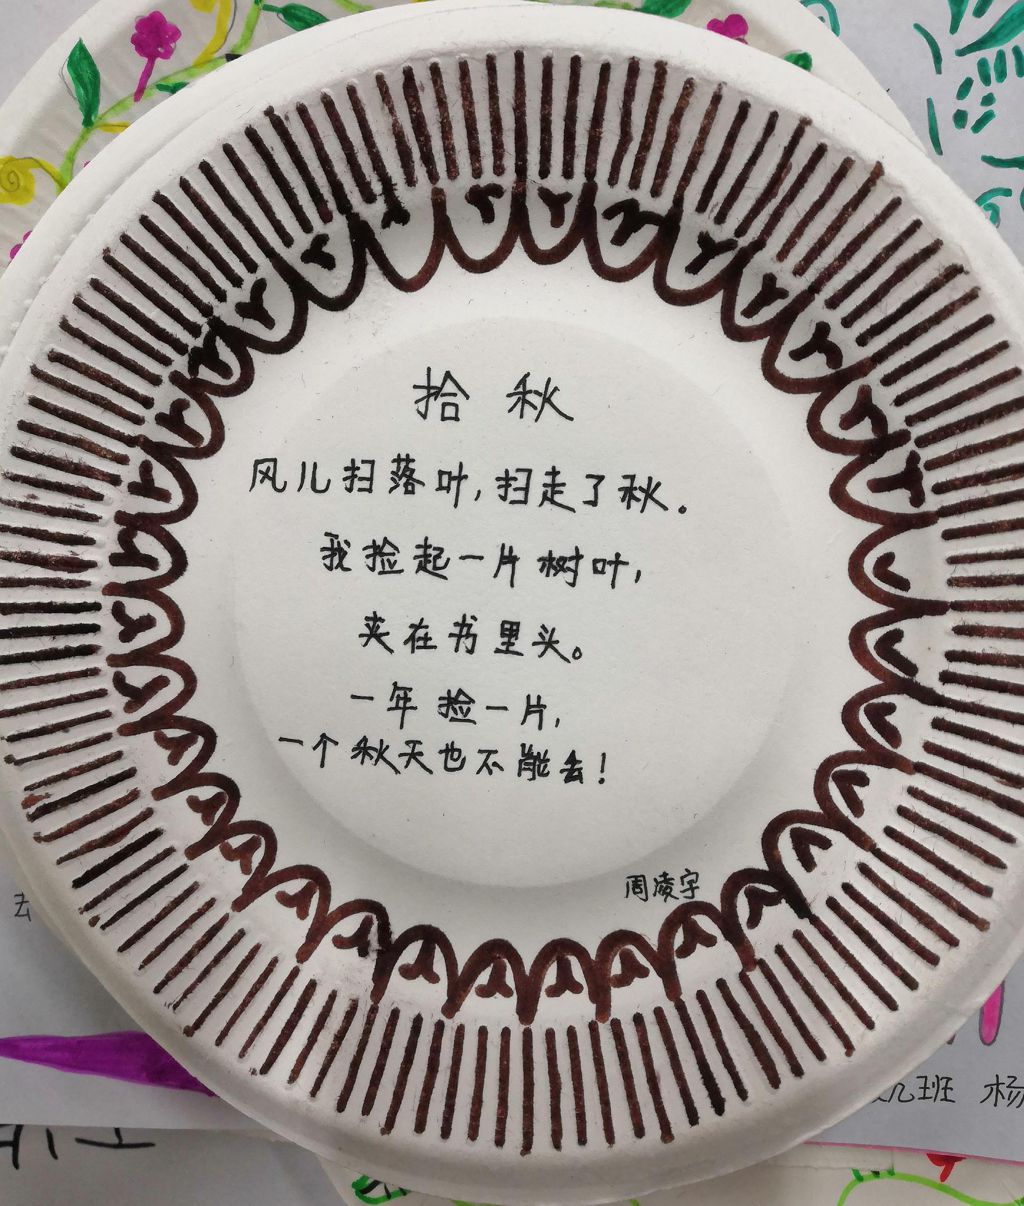 拾 秋
风儿扫落叶,扫走了秋。
我捡起一片树叶,
夹在书里头。
一年捡一片,
一个秋天也不能去!
周凌宇
去
班 杨